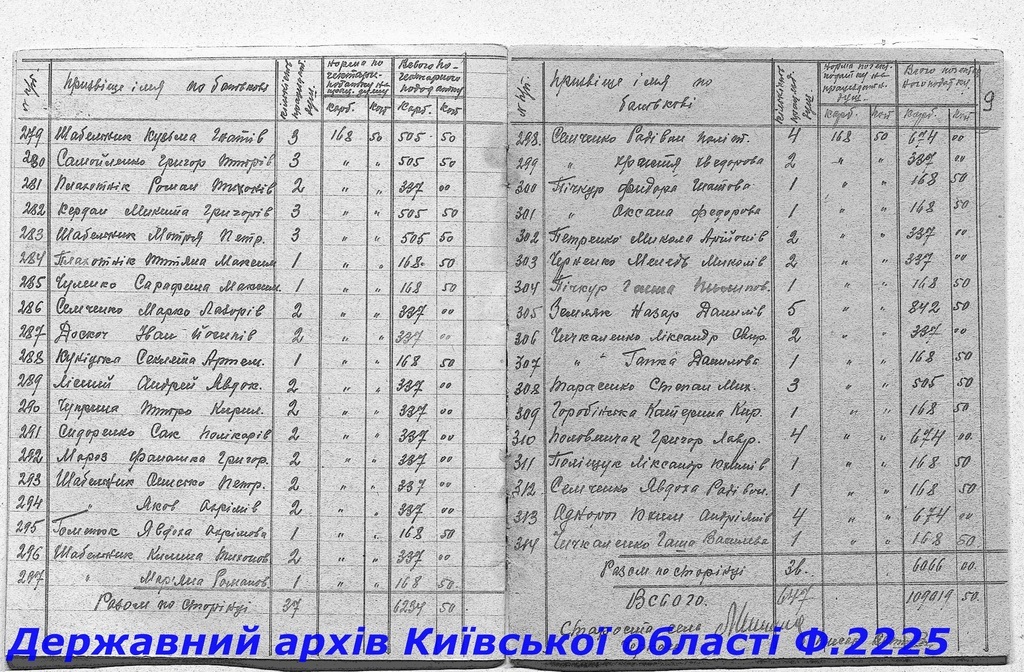 № п/п. Прізвіще імя по батькові Кількість працезд. душ. Норма по гектарн. податку на прац. душу Всього погектарного податку
Карб. Коп Карб. Коп
279 Шабельник Кузьма Гнатів 3 168 50 505 50
280 Самойленко Григор Дмитрів 3 " " 505 50
281 Плахотнік Роман Тихонів 2 " " 337 00
282 Кердан Микита Григорів 3 " " 505 50
283 Шабельник Мотря Петр. 3 " " 505 50
284 Плахотнік Тетяна Максим 1 " " 168 50
285 Чуленко Сарафина Максим. 1 " " 168 50
286 Семченко Марко Лазорів 2 " " 337 00
287 Доскоч Іван Йосипів 2 " " 337 00
288 Секлета Артем. 1 " " 168 50
289 Лісний Андрій Явдок. 2 " " 337 00
290 Чуприна Дмитро Кирил. 2 " " 337 00
291 Сидоренко Сак Полікарів 2 " " 337 00
292 Мороз Григор. 2 " " 337 00
293 Шабельник Петр. 2 " " 337 00
294 " Яков 2 " " 337 00
295 Явдоха 1 " " 168 50
296 Шабельник Килина Тихонов 2 " " 337 00
297 " Мар'яна Романов 1 " " 168 50
Разом по сторінці 37 6234 50
№ п/п. Прізвіще імя по батькові Кількість працезд. душ. Норма погек. податку на працездатн. душ. Всього погектарного податку.
Карб. Коп Карб. Коп
9
298 Санченко Радівон Політ. 4 168 50 674 00
299 " Христя Хведорова 2 " " 337 00
300 Пічкур Фидора Гнатова 1 " " 168 50
301 " Оксана Федорова 1 " " 168 50
302 Петренко Микола 2 " " 337 00
303 Черненко Миколів 2 " " 337 00
304 Пічкур Ганна 1 " " 168 50
305 Земляк Назар Данилів 5 " " 842 50
306 Чичкаленко Ліксандр 2 " " 337 00
307 " Гапка Данилова 1 " " 168 50
308 Тарасенко Степан Мих. 3 " " 505 50
309 Горобінська Катерина Кир. 1 " " 168 50
310 Половинчак Григор Лавр. 4 " " 674 00
311 Поліщук Ліксандр Юхимів 1 " " 168 50
312 Семченко Явдоха Радівон. 1 " " 168 50
313 Однорог Юхим Андріянів 4 " " 674 00
314 Чичкаленко Ганна Василева 1 " " 168 50
Разом по сторінці 36. 6066 00
Всього. 647 109019 50
Староста села
Державний архів Київської області Ф.2225